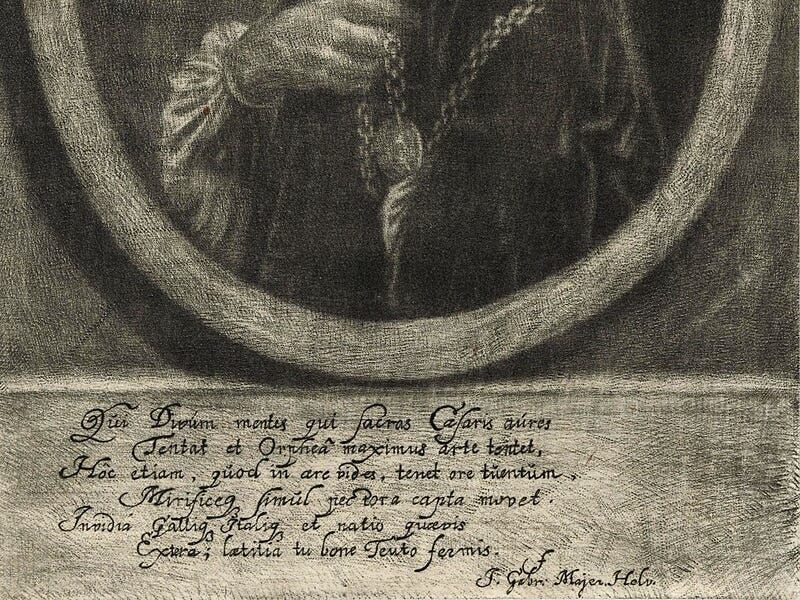 Qui Divûm mentes qui sacras Cæsaris aures
Tentat et Orpheâ maximus arte tentet,
Hôc etiam, quod in ære vides, tenet ore tuentum,
Mirificeq simul pectora capta movet.
Invidia Galliq Italiq et natio quævis
Extera; lætitia tu bone Teuto fermis.
F. Gabr: Majer. Helv.